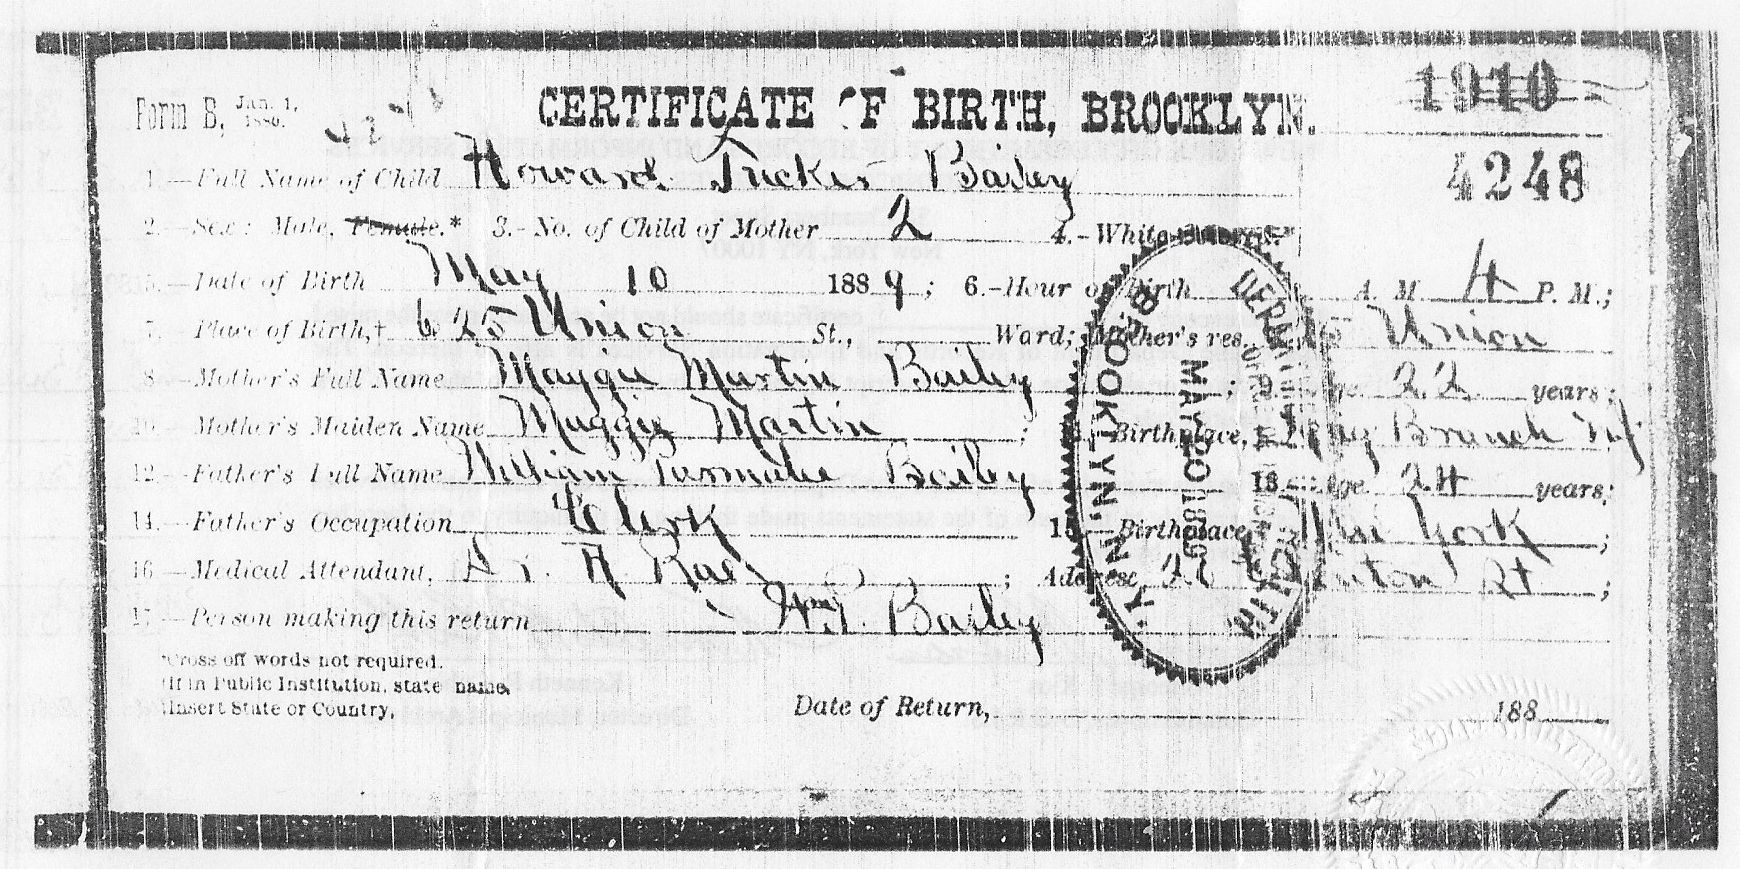 Form B, Jan. 1, 1886.
CERTIFICATE OF BIRTH, BROOKLYN.
1910
4248
1.—Full Name of Child Howard Tucker Bailey
2.—Sex: Male, Female.* 3.-No. of Child of Mother 2 4.-White
5.—Date of Birth May 10 1889; 6.-Hour of Birth A. M. 4 P. M.;
7.—Place of Birth,† 625 Union St., Ward; Mother's res. Union
8.—Mother's Full Name Maggie Martin Bailey; Age 22 years;
10.—Mother's Maiden Name Maggie Martin; Birthplace, Branch NJ
12.—Father's Full Name William Bailey 13.—Age 24 years;
14.—Father's Occupation Clerk 15.—Birthplace, New York;
16.—Medical Attendant, Rae; Address, Clinton St;
17.—Person making this return Wm P. Bailey
*Cross off words not required.
†If in Public Institution, state name.
‡Insert State or Country.
Date of Return, 188
DEPARTMENT OF HEALTH
MAY 20 1889
BROOKLYN, N.Y.